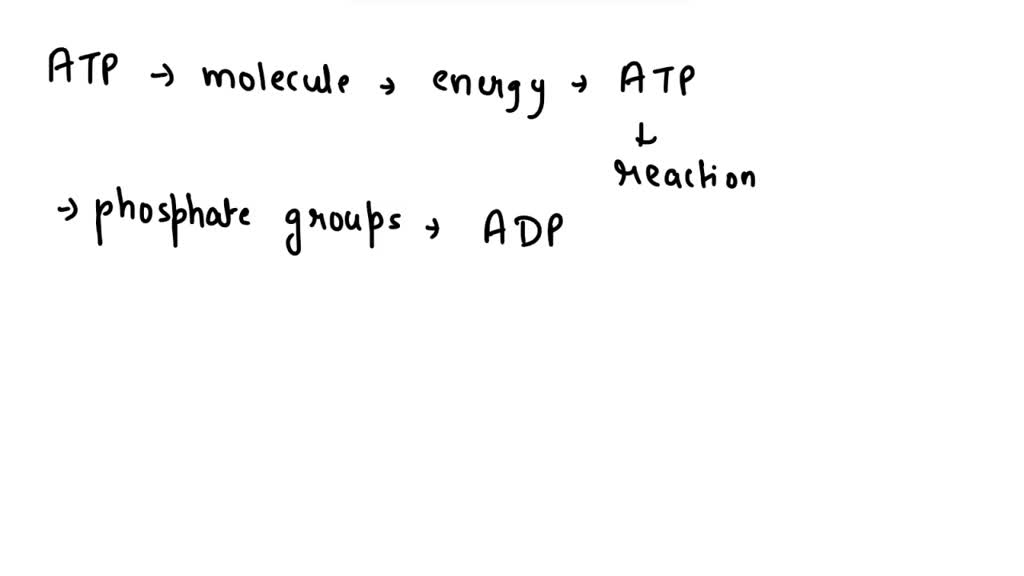 ATP → molecule → energy → ATP
↓
reaction
→ phosphate groups → ADP